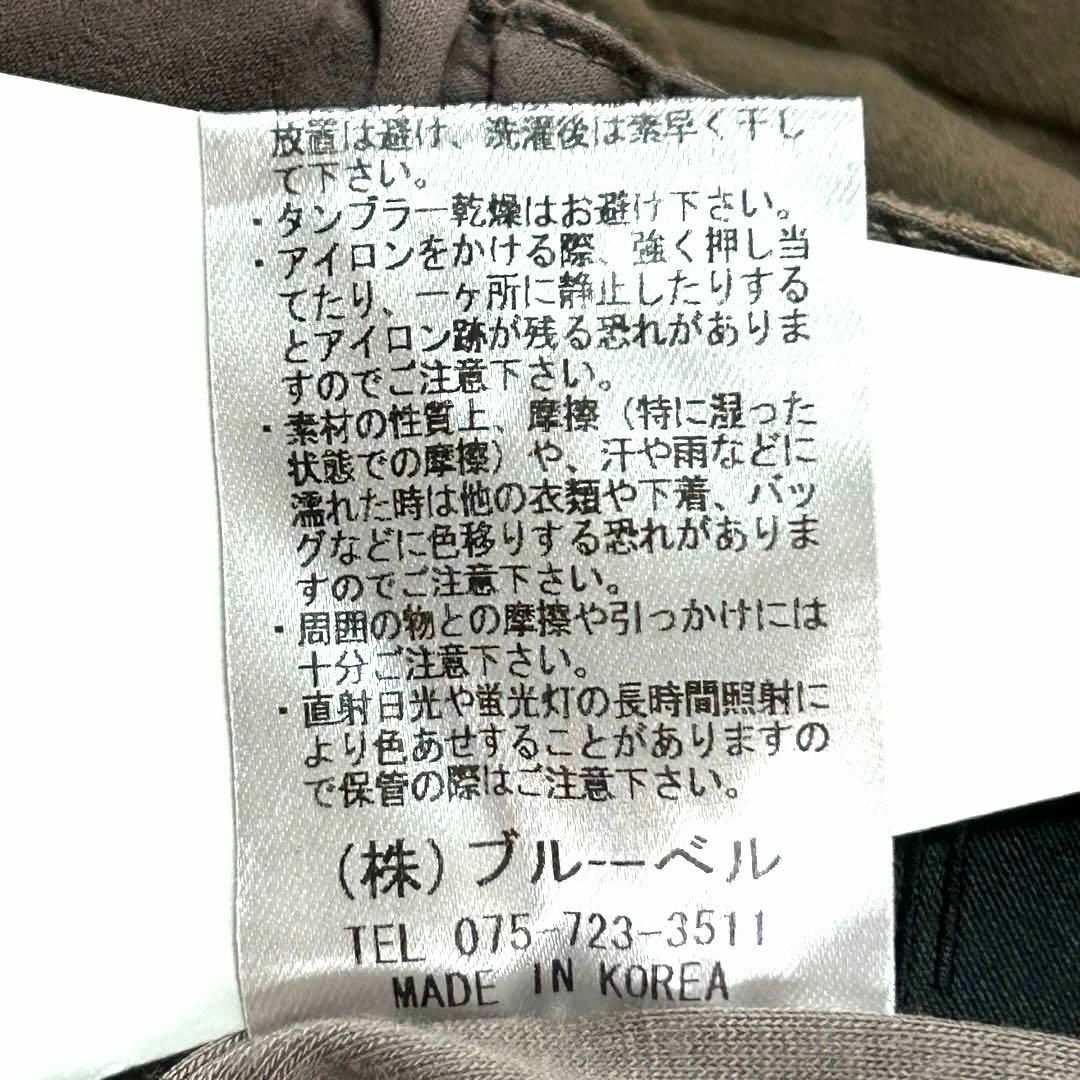 放置は避け、洗濯後は素早く干し
て下さい。
・タンブラー乾燥はお避け下さい。
・アイロンをかける際、強く押し当
てたり、一ヶ所に静止したりする
とアイロン跡が残る恐れがありま
すのでご注意下さい。
・素材の性質上、摩擦（特に湿った
状態での摩擦）や、汗や雨などに
濡れた時は他の衣類や下着、バッ
グなどに色移りする恐れがありま
すのでご注意下さい。
・周囲の物との摩擦や引っかけには
十分ご注意下さい。
・直射日光や蛍光灯の長時間照射に
より色あせすることがありますの
で保管の際はご注意下さい。
(株)ブルーベル
TEL 075-723-3511
MADE IN KOREA